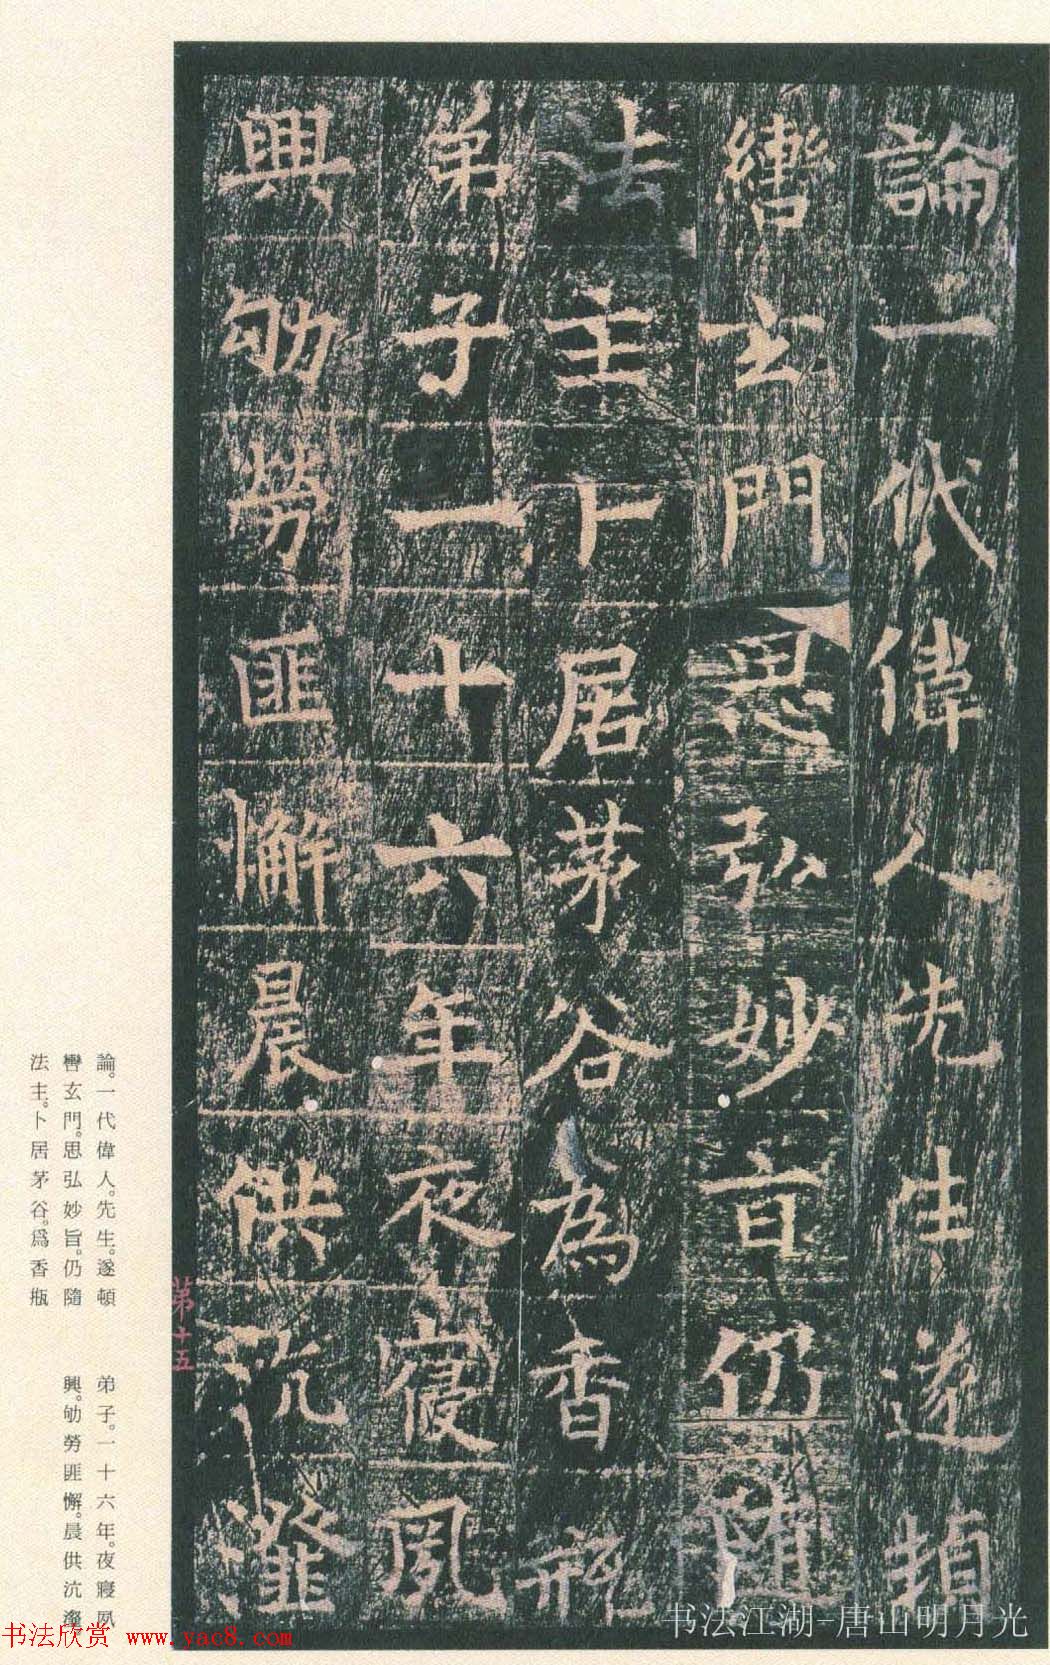 論一代偉人先生遂頓
轡玄門思弘妙旨仍隨
法主卜居茅谷為香瓶
弟子一十六年夜寢夙
興劬勞匪懈晨供沆瀣
第十五
論。一代偉人。先生。遂頓
轡玄門。思弘妙旨。仍隨
法主。卜居茅谷。爲香瓶
弟子。一十六年。夜寢夙
興。劬勞匪懈。晨供沆瀣
书法欣赏 www.yac8.com
书法江湖-唐山明月光